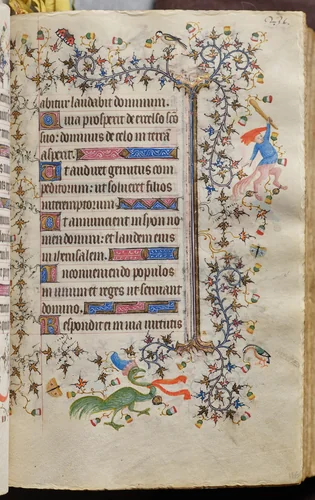 abitur laudabit dominum.
Quia prosperit de excelso sco
suo: dominus de celo in terra
aspexit.
Ut audiret gemitus com
peditorum: ut solveret filios
interemptorum.
Ut annuncient in syon no
men domini: et laudem eius
in iherusalem.
In conveniendo populos
in unum et reges ut serviant
domino.
Respondit ei in via virtutis